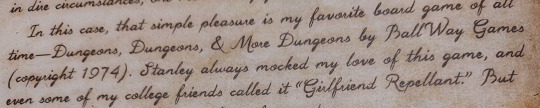 in dire circumstances,
In this case, that simple pleasure is my favorite board game of all
time—Dungeons, Dungeons, & More Dungeons by BallWay Games
(copyright 1974). Stanley always mocked my love of this game, and
even some of my college friends called it "Girlfriend Repellant." But